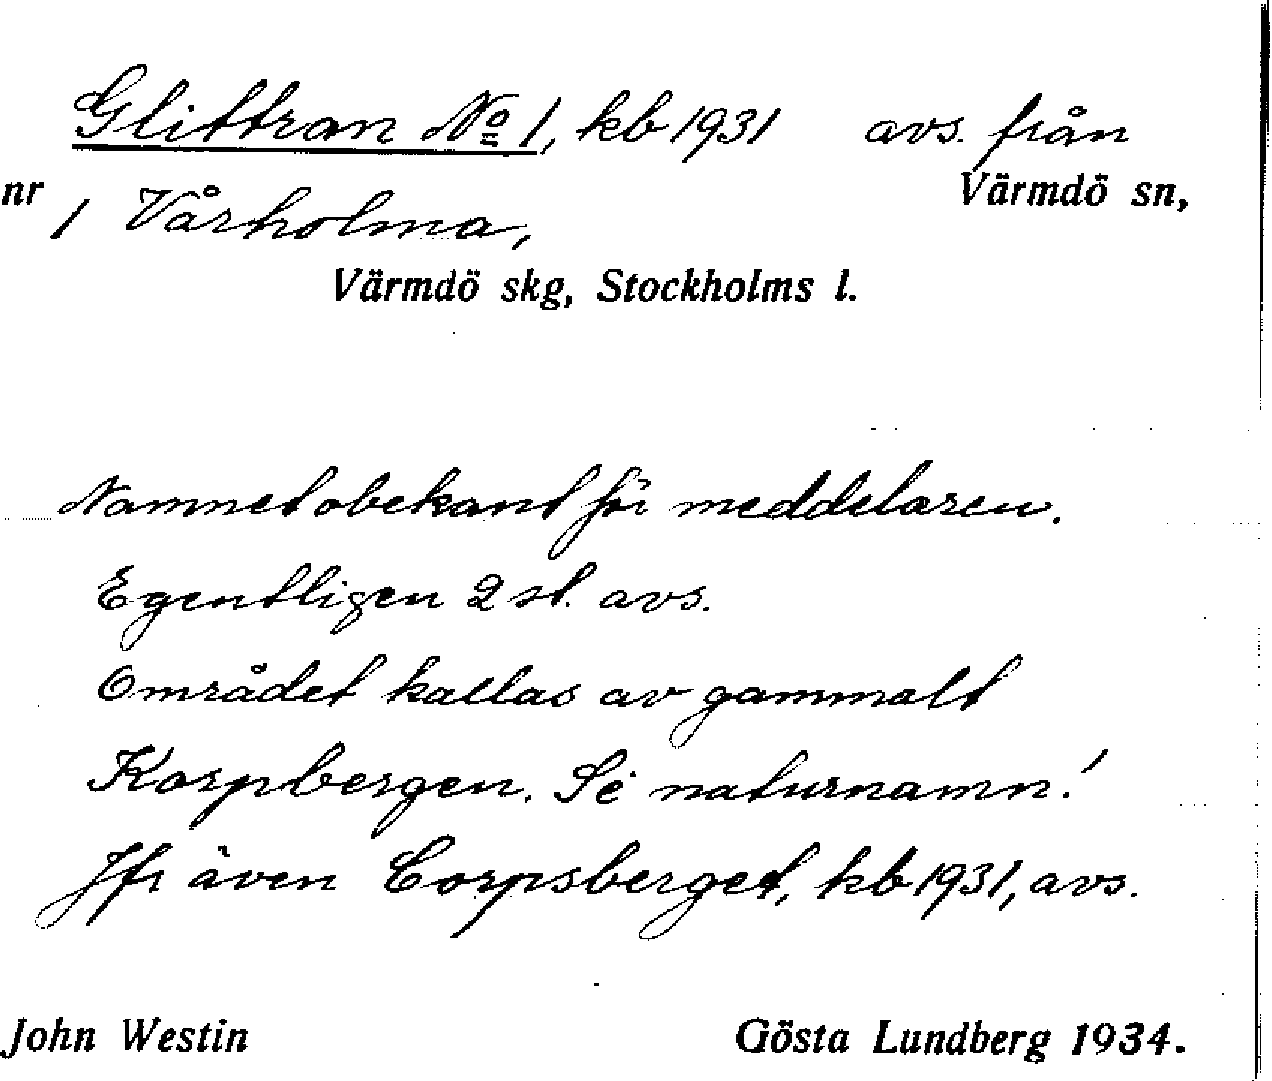 Glittran No 1, kb 1931 avs. från
Värmdö sn,
nr 1 Vårholma,
Värmdö skg, Stockholms l.
Namnet obekant för meddelaren.
Egentligen 2 st. avs.
Området kallas av gammalt
Korpbergen. Se naturnamn!
Jfr även Corpsberget, kb 1931, avs.
John Westin Gösta Lundberg 1934.